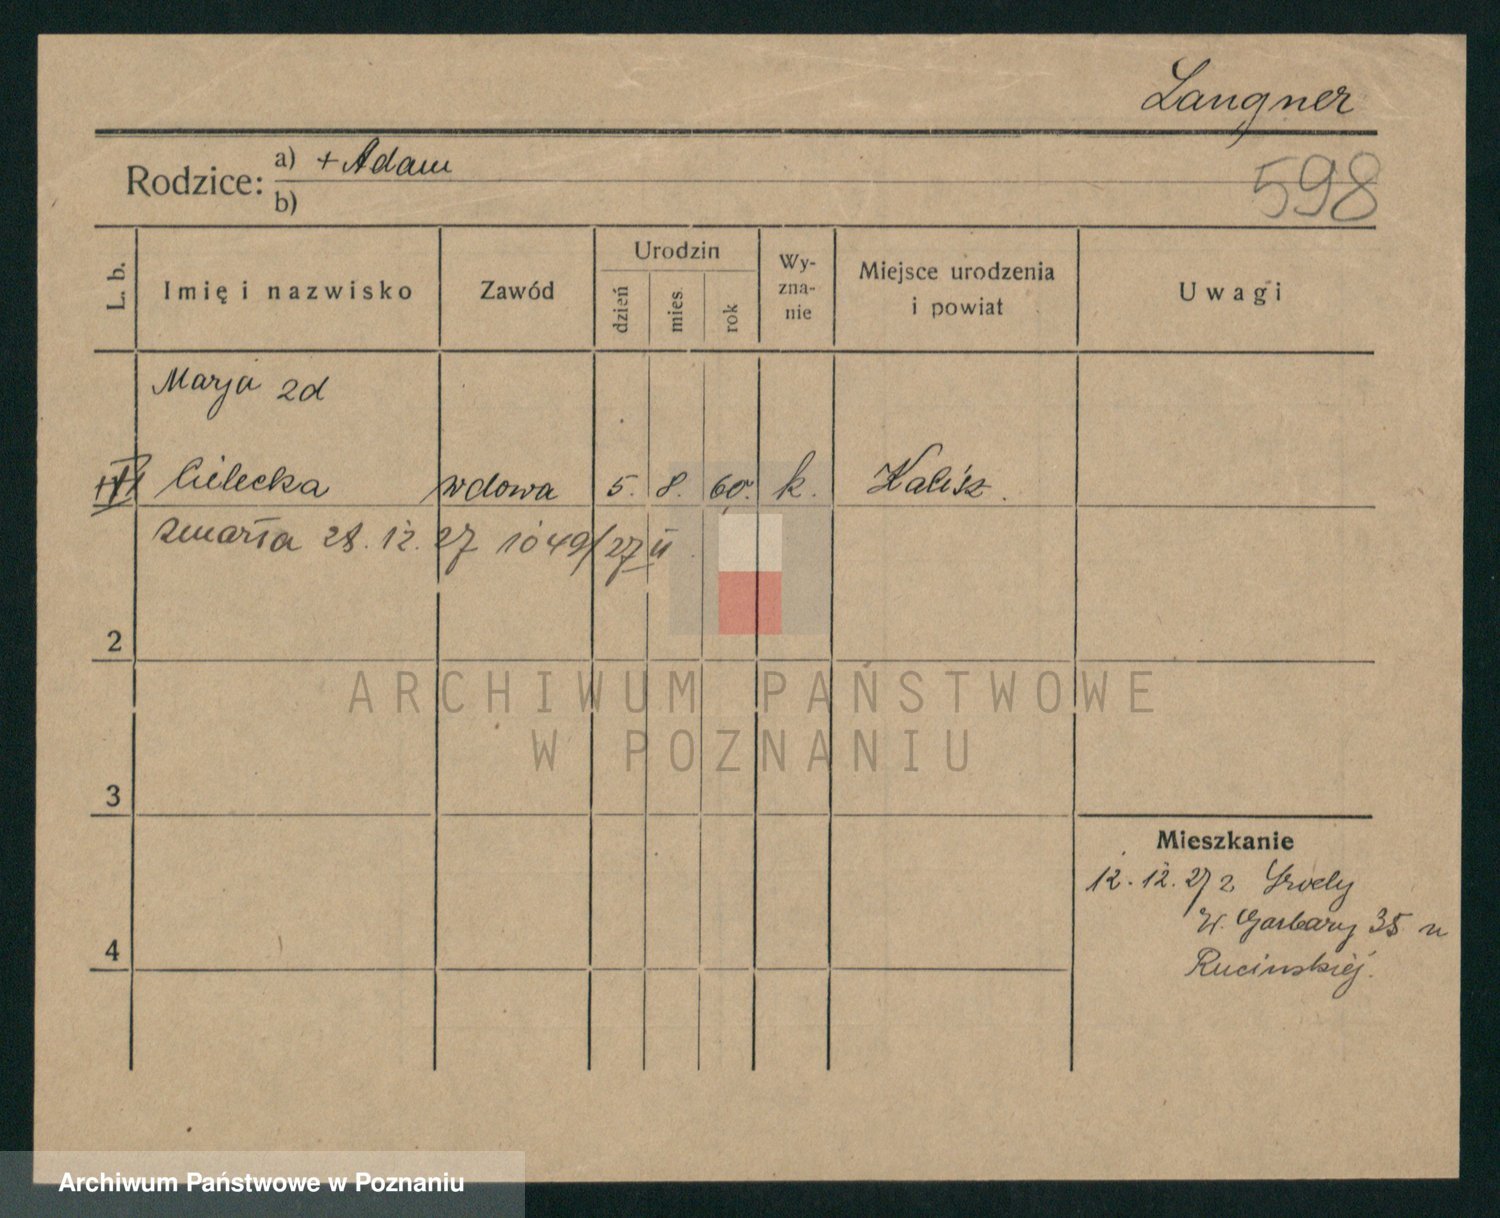 Langner
Rodzice: a) + Adam
b)
598
L. b. Imię i nazwisko Zawód Urodzin dzień mies. rok Wy-zna-nie Miejsce urodzenia i powiat Uwagi
Marja 2d
Cielecka wdowa 5. 8. 60. k. Kalisz.
zmarła 28. 12. 27 1049/27 II
2
ARCHIWUM PAŃSTWOWE
W POZNANIU
3
Mieszkanie
12. 12. 27 z Środy
W. Garbary 35 u
4
Rucinskiej.
Archiwum Państwowe w Poznaniu